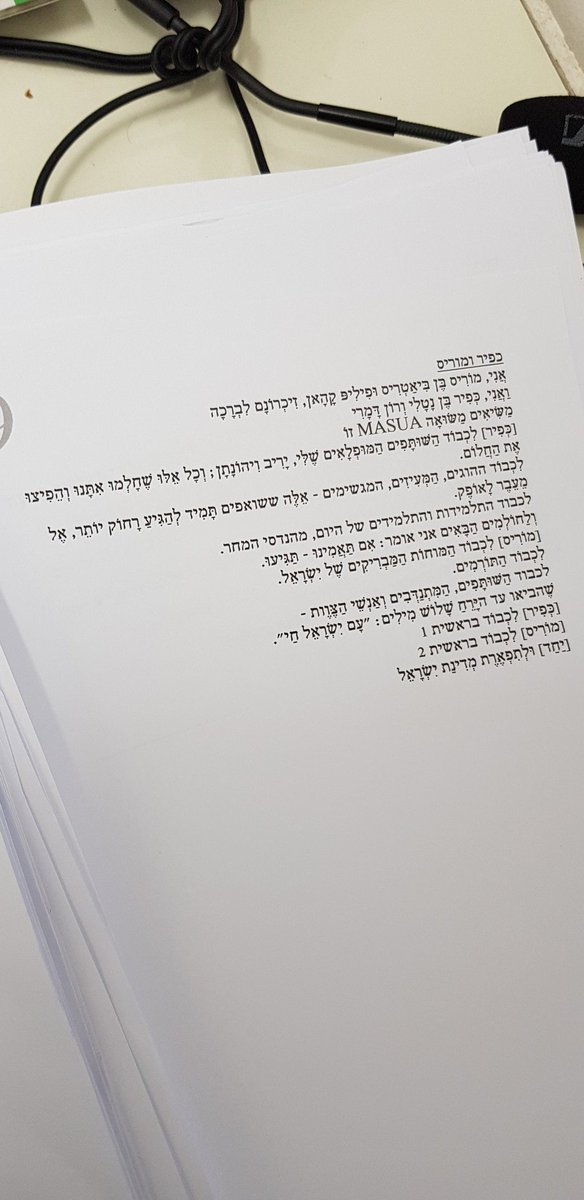 כפיר ומוריס
אֲנִי, מוֹרִיס בֶּן בִּיאַטְרִיס וּפִילִיפּ קָהַאן, זִיכְרוֹנָם לִבְרָכָה
וַאֲנִי, כְּפִיר בֶּן נָטַלִי וְרוֹן דָּמָרִי
מַשִּׂיאִים מַשּׂוּאָה MASUA זוֹ
[כְּפִיר] לִכְבוֹד הַשּׁוּתָּפִים הַמּוּפְלָאִים שֶׁלִּי, יָרִיב וִיהוֹנָתָן; וְכָל אֵלּוּ שֶׁחָלְמוּ אִתָּנוּ וְהֵפִיצוּ
אֶת הַחֲלוֹם.
לִכְבוֹד ההוגים, הַמְּעִיזִים, המגשימים - אֵלֶּה ששואפים תָּמִיד לְהַגִּיעַ רָחוֹק יוֹתֵר, אֶל
מֵעֵבֶר לָאוֹפֶק.
לכבוד התלמידות והתלמידים של היום, מהנדסי המחר.
וְלַחוֹלְמִים הַבָּאִים אני אומר: אִם תַּאֲמִינוּ - תַּגִּיעוּ.
[מוֹרִיס] לִכְבוֹד הַמּוֹחוֹת הַמַּבְרִיקִים שֶׁל יִשְׂרָאֵל.
לִכְבוֹד הַתּוֹרְמִים.
לִכְבוֹד הַשּׁוּתָּפִים, הַמִּתְנַדְּבִים וְאַנְשֵׁי הַצֶּוֶות -
שֶׁהביאו עד הַיָּרֵחַ שָׁלוֹשׁ מִילִים: "עַם יִשְׂרָאֵל חַי".
[כְּפִיר] לִכְבוֹד בראשית 1
[מוֹרִיס] לִכְבוֹד בראשית 2
[יַחַד] וּלְתִפְאֶרֶת מְדִינַת יִשְׂרָאֵל